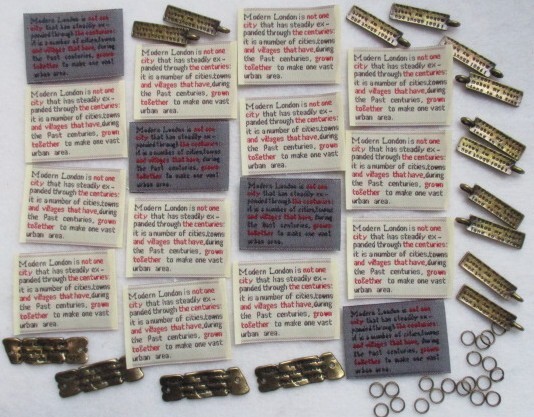 Modern London is not one
city that has steadily ex -
panded through the centuries:
it is a number of cities,towns
and villages that have, during
the Past centuries, grown
toGether to make one vast
urban area.
Modern London is not one
city that has steadily ex -
panded through the centuries:
it is a number of cities,towns
and villages that have,during
the Past centuries, grown
toGether to make one vast
urban area.
Modern London is not one
city that has steadily ex -
panded through the centuries:
it is a number of cities,towns
and villages that have,during
the Past centuries, grown
toGether to make one vast
urban area.
Modern London is not one
city that has steadily ex -
panded through the centuries:
it is a number of cities,towns
and villages that have,during
the Past centuries, grown
toGether to make one vast
urban area.
Modern London is not one
city that has steadily ex -
panded through the centuries:
it is a number of cities,towns
and villages that have,during
the Past centuries, grown
toGether to make one vast
urban area.
Modern London is not one
city that has steadily ex -
panded through the centuries:
it is a number of cities,towns
and villages that have, during
the Past centuries, grown
toGether to make one vast
urban area.
Modern London is not one
city that has steadily ex -
panded through the centuries:
it is a number of cities,towns
and villages that have,during
the Past centuries, grown
toGether to make one vast
urban area.
Modern London is not one
city that has steadily ex -
panded through the centuries:
it is a number of cities,towns
and villages that have,during
the Past centuries, grown
toGether to make one vast
urban area.
Modern London is not one
city that has steadily ex -
panded through the centuries:
it is a number of cities,towns
and villages that have,during
the Past centuries, grown
toGether to make one vast
urban area.
Modern London is not one
city that has steadily ex -
panded through the centuries:
it is a number of cities,towns
and villages that have,during
the Past centuries, grown
toGether to make one vast
urban area.
Modern London is not one
city that has steadily ex -
panded through the centuries:
it is a number of cities,towns
and villages that have, during
the Past centuries, grown
toGether to make one vast
urban area.
Modern London is not one
city that has steadily ex -
panded through the centuries:
it is a number of cities,towns
and villages that have,during
the Past centuries, grown
toGether to make one vast
urban area.
Modern London is not one
city that has steadily ex -
panded through the centuries:
it is a number of cities,towns
and villages that have,during
the Past centuries, grown
toGether to make one vast
urban area.
Modern London is not one
city that has steadily ex -
panded through the centuries:
it is a number of cities,towns
and villages that have,during
the Past centuries, grown
toGether to make one vast
urban area.
Modern London is not one
city that has steadily ex -
panded through the centuries:
it is a number of cities,towns
and villages that have,during
the Past centuries, grown
toGether to make one vast
urban area.
Modern London is not one
city that has steadily ex -
panded through the centuries:
it is a number of cities,towns
and villages that have, during
the Past centuries, grown
toGether to make one vast
urban area.